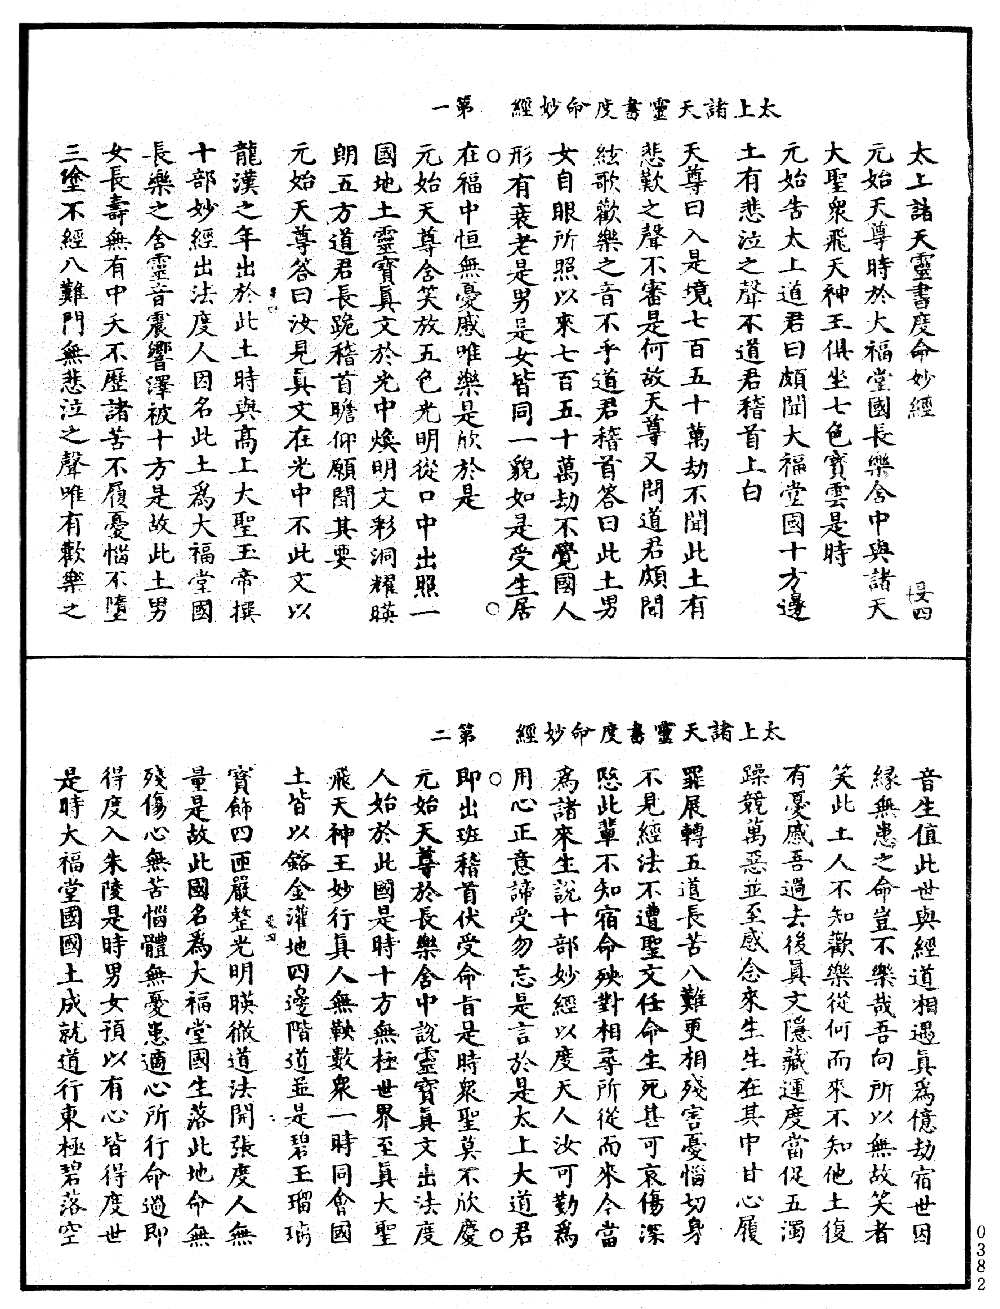 太上諸天靈書度命妙經　第一
太上諸天靈書度命妙經　四
元始天尊時於大福堂國長樂舍中與諸天
大聖衆飛天神王俱坐七色寶雲是時
元始告太上道君曰頗聞大福堂國十方邊
土有悲泣之聲不道君稽首上白
天尊曰入是境七百五十萬劫不聞此土有
悲歎之聲不審是何故天尊又問道君頗聞
絃歌歡樂之音不乎道君稽首答曰此土男
女自眼所照以來七百五十萬劫不覺國人
形有衰老是男是女皆同一貌如是受生居
在福中恒無憂戚唯樂是欣於是
元始天尊含笑放五色光明從口中出照一
國地土靈寶真文於光中煥明文彩洞耀暎
朗五方道君長跪稽首瞻仰願聞其要
元始天尊答曰汝見真文在光中不此文以
龍漢之年出於此土時與高上大聖玉帝撰
十部妙經出法度人因名此土爲大福堂國
長樂之舍靈音震響澤被十方是故此土男
女長壽無有中夭不歷諸苦不履憂惱不墮
三塗不經八難門無悲泣之聲唯有歡樂之
太上諸天靈書度命妙經　第二
音生值此世與經道相遇真爲億劫宿世因
緣無患之命豈不樂哉吾向所以無故笑者
笑此土人不知歡樂從何而來不知他土復
有憂慼吾過去後真文隱藏運度當促五濁
躁競萬惡並至感念來生生在其中甘心履
罪展轉五道長苦八難更相殘害憂惱切身
不見經法不遭聖文任命生死甚可哀傷深
愍此輩不知宿命殃對相尋所從而來今當
爲諸來生說十部妙經以度天人汝可勤爲
用心正意諦受勿忘是言於是太上大道君
即出班稽首伏受命旨是時衆聖莫不欣慶
元始天尊於長樂舍中說靈寶真文出法度
人始於此國是時十方無極世界至真大聖
飛天神王妙行真人無鞅數衆一時同會國
土皆以鎔金灌地四邊階道並是碧玉瑠璃
寶飾四匝嚴整光明暎徹道法開張度人無
量是故此國名爲大福堂國生落此地命無
殘傷心無苦惱體無憂患適心所行命過即
得度入朱陵是時男女預以有心皆得度世
是時大福堂國國土成就道行東極碧落空
0382